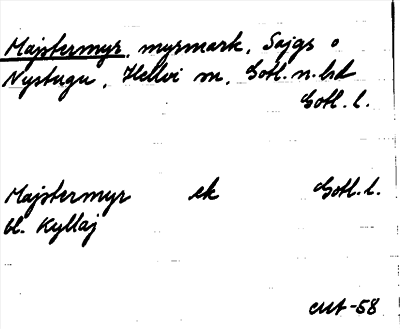 Majstermyr, myrmark, Sajgs o
Nystugu, Hellvi sn, Gotl. n. hd
Gotl. l.
Majstermyr ek Gotl. l.
bl. Kyllaj
cut-58